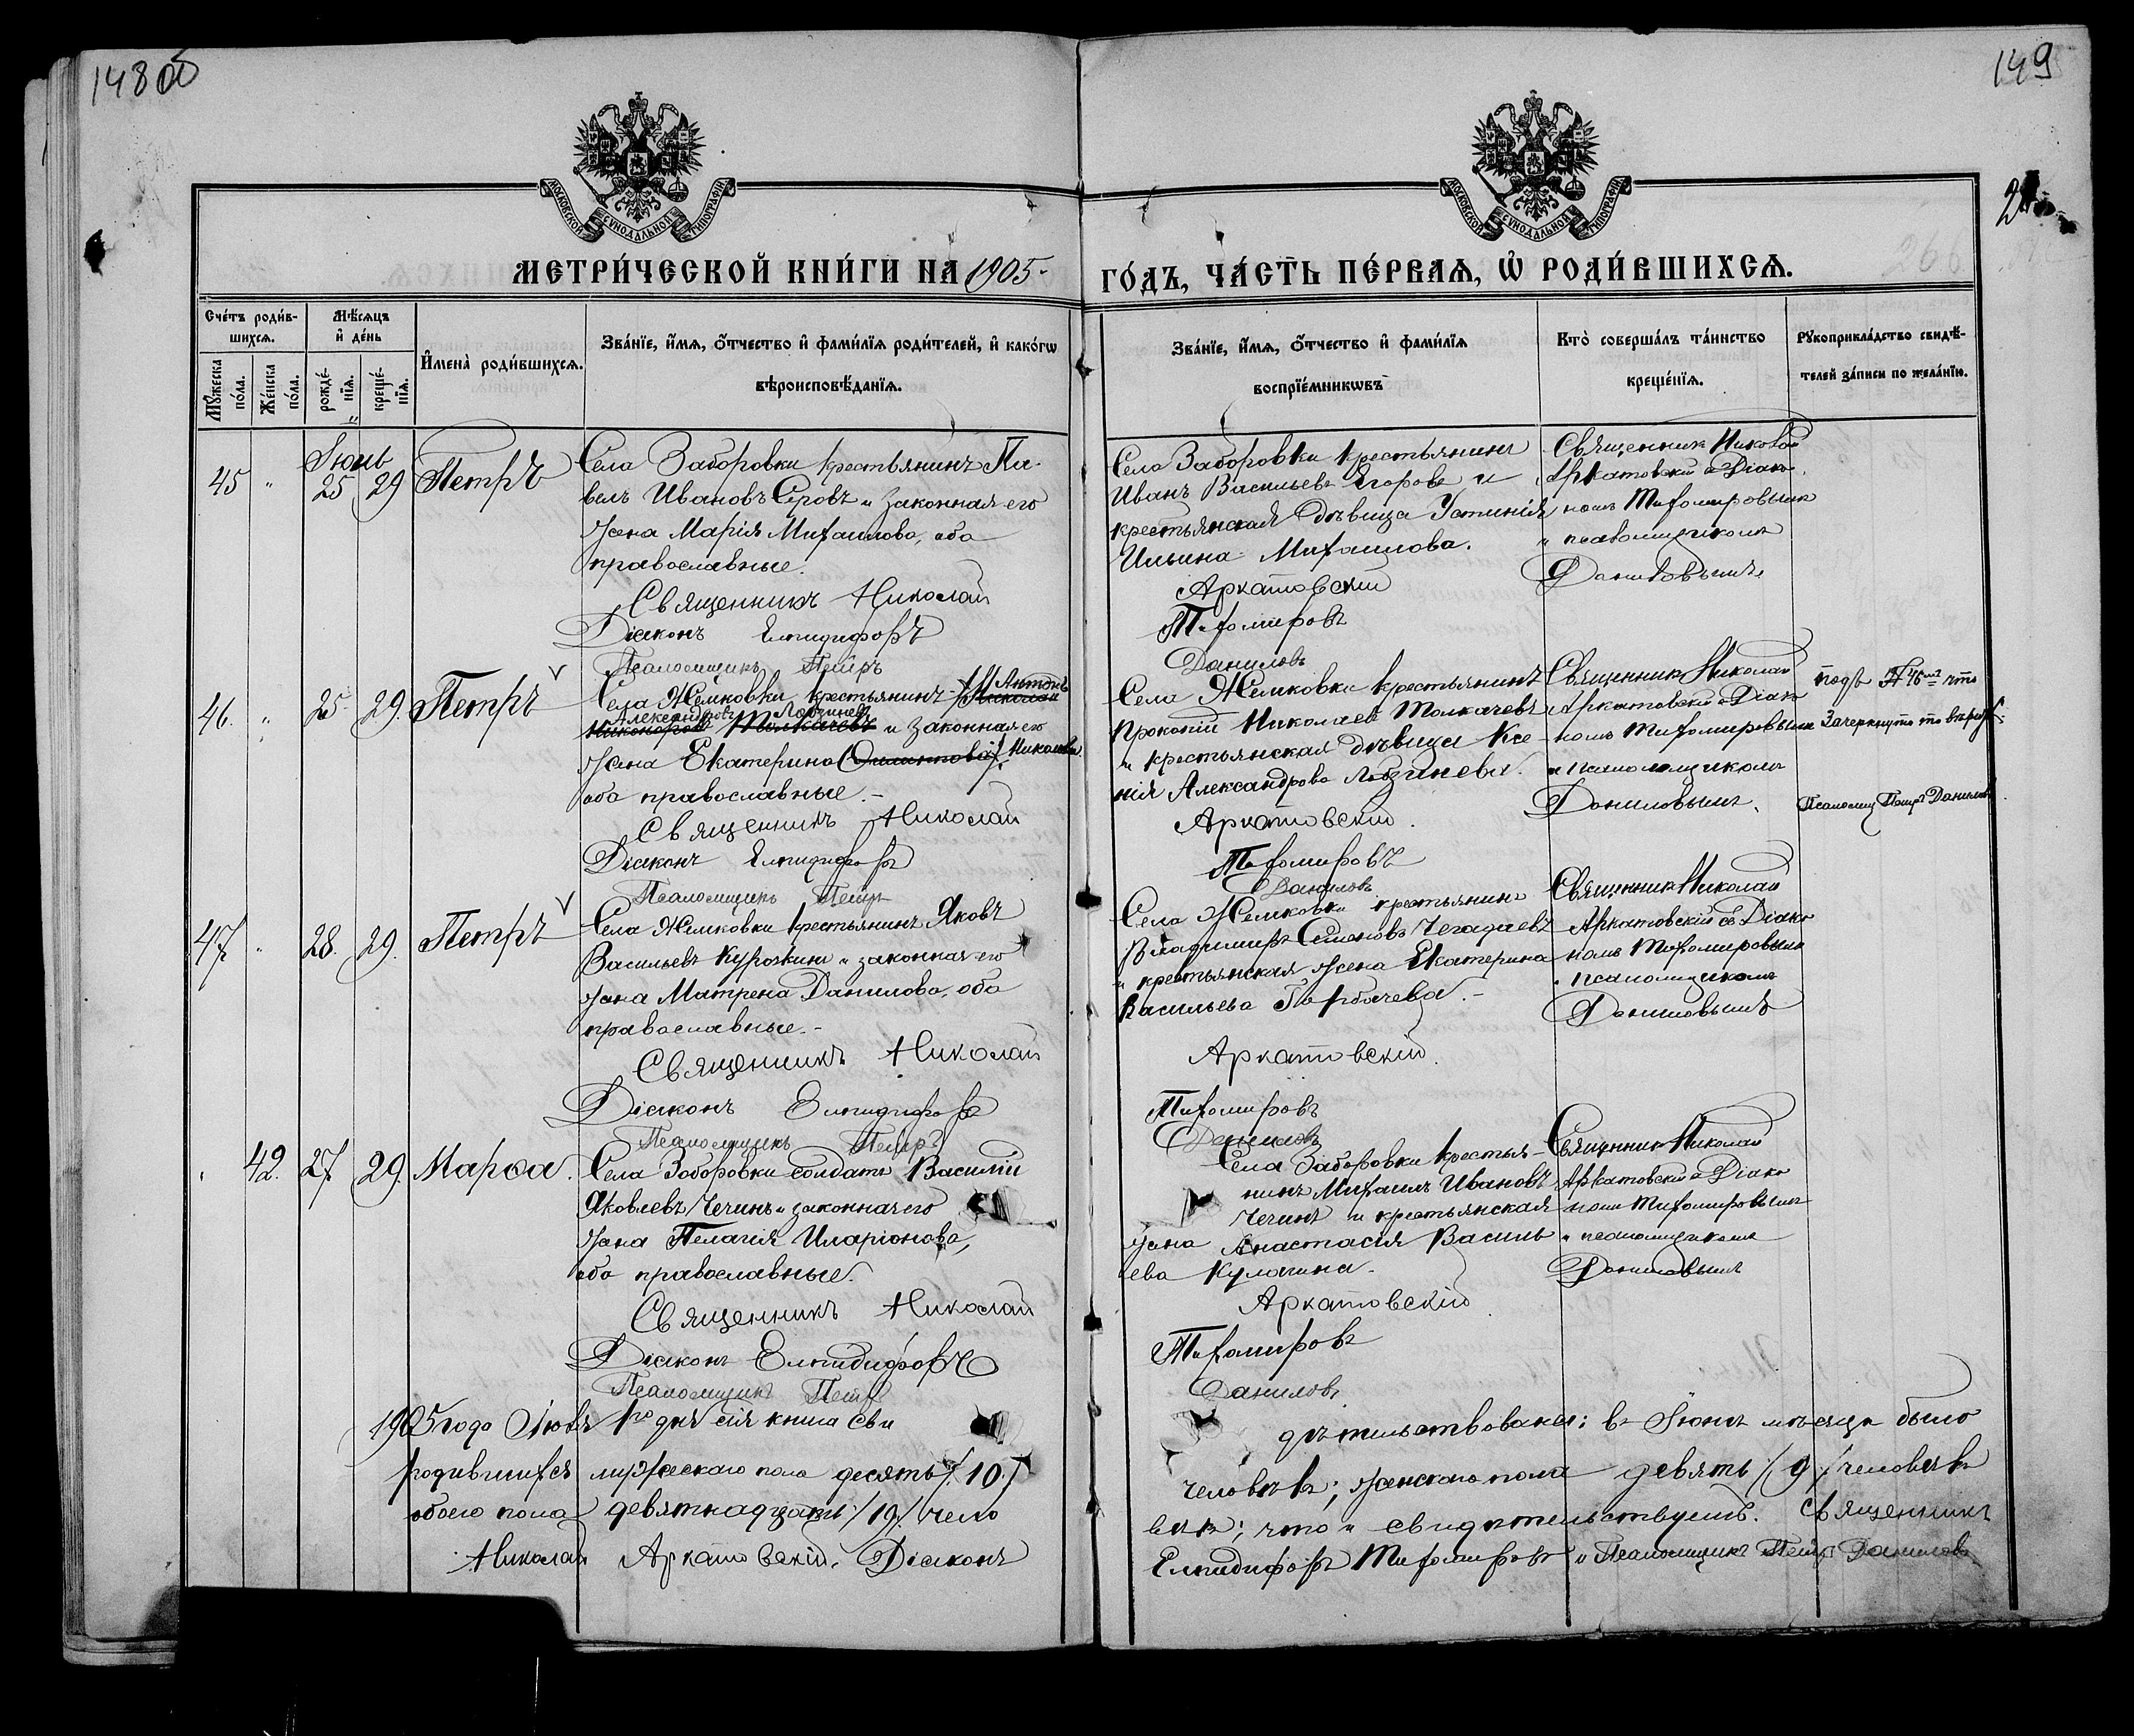 148 об
149
МОСКОВСКОЙ СУНОДАЛЬНОЙ ТИПОГРАФІИ
МОСКОВСКОЙ СУНОДАЛЬНОЙ ТИПОГРАФІИ
МЕТРИ́ЧЕСКОЙ КНИ́ГИ НА 1905
ГО́ДЪ, ЧА́СТЬ ПЕ́РВАЯ, Ѡ҆ РОДИ́ВШИХСЯ.
Сче́тъ роди́в-
шихся.
Мꙋ́жеска по́ла.
Же́нска по́ла.
Мѣ́сяцъ
и҆ де́нь
рожде́-
нїя.
креще́-
нїя.
И҆мена̀ роди́вшихся.
Зва́нїе, и҆́мя, ѻ҆́тчество и҆ фами́лїя роди́телей, и҆ како́гѡ
вѣроисповѣ́данїя.
Зва́нїе, и҆́мя, ѻ҆́тчество и҆ фами́лїя
воспрїе́мникѡвъ
Кто̀ соверша́лъ та́инство
креще́нїя.
Рꙋкоприкла́дство свидѣ́-
телей за́писи по жела́нїю.
Іюнь
45 " 25 29 Петръ
Села Заборовки крестьянинъ Па-
велъ Ивановъ Серовъ и законная его
жена Марія Михаилова, оба
православные.
Священникъ Николай
Діаконъ Елпидифоръ
Псаломщикъ Петръ
Села Заборовки крестьянинъ
Иванъ Васильевъ Егоровъ и
крестьянская дѣвица Устинія
Ильина Михаилова.
Аркатовскій
Тихомировъ
Даниловъ
Священникъ Николай
Аркатовскій съ Діако
номъ Тихомировымъ
и псаломщикомъ
Даниловымъ.
46. " 25 29. Петръ
Села Жемковки крестьянинъ Антонъ
Александровъ Лобзиневъ
Никоноровъ Толкачевъ и законная его
жена Екатерина Николаева
оба православные.
Священникъ Николай
Діаконъ Елпидифоръ
Псаломщикъ Петръ
Села Жемковки крестьянинъ
Прокопій Николаевъ Толкачевъ
и крестьянская дѣвица Ксе-
нія Александрова Лобзинева.
Аркатовскій.
Тихомировъ
Даниловъ
Священникъ Николай
Аркатовскій съ Діако
номъ Тихомировымъ
и псаломщикомъ
Даниловымъ.
подъ № 46мъ что
Зачеркнуто то
Псаломщ Петръ Даниловъ
47 " 28. 29. Петръ
Села Жемковки крестьянинъ Яковъ
Васильевъ Курочкинъ и законная его
жена Матрена Данилова, оба
православные.
Священникъ Николай
Діаконъ Елпидифоръ
Псаломщикъ Петръ
Села Жемковки крестьянинъ
Владимиръ Семеновъ Чегадаевъ
и крестьянская жена Екатерина
Васильева Горбачева.
Аркатовскій.
Тихомировъ
Даниловъ
Священникъ Николай
Аркатовскій съ Діако
номъ Тихомировымъ
и псаломщикомъ
Даниловымъ
42. 27. 29. Марѳа.
Села Заборовки солдатъ Василій
Яковлевъ Чечинъ и законная его
жена Пелагія Иларіонова,
оба православные.
Священникъ Николай
Діаконъ Елпидифоръ
Псаломщикъ Петръ
Села Заборовки крестья-
нинъ Михаилъ Ивановъ
Чечинъ и крестьянская
жена Анастасія Василь
ева Кулагина.
Аркатовскій
Тихомировъ
Даниловъ
Священникъ Николай
Аркатовскій съ Діако
номъ Тихомировымъ
и псаломщикомъ
Даниловымъ
1905 года Іюля 1го дня сія книга сви дѣтельствована: въ Іюнѣ мѣсяцѣ было
родившихся мужескаго пола десять /10./ человѣкъ; женскаго пола девять /9/ человѣкъ
обоего пола девятнадцать /19./ чело вѣкъ; что и свидѣтельствуемъ. Священникъ
Николай Аркатовскій. Діаконъ Елпидифоръ Тихомировъ и Псаломщикъ Петръ Даниловъ